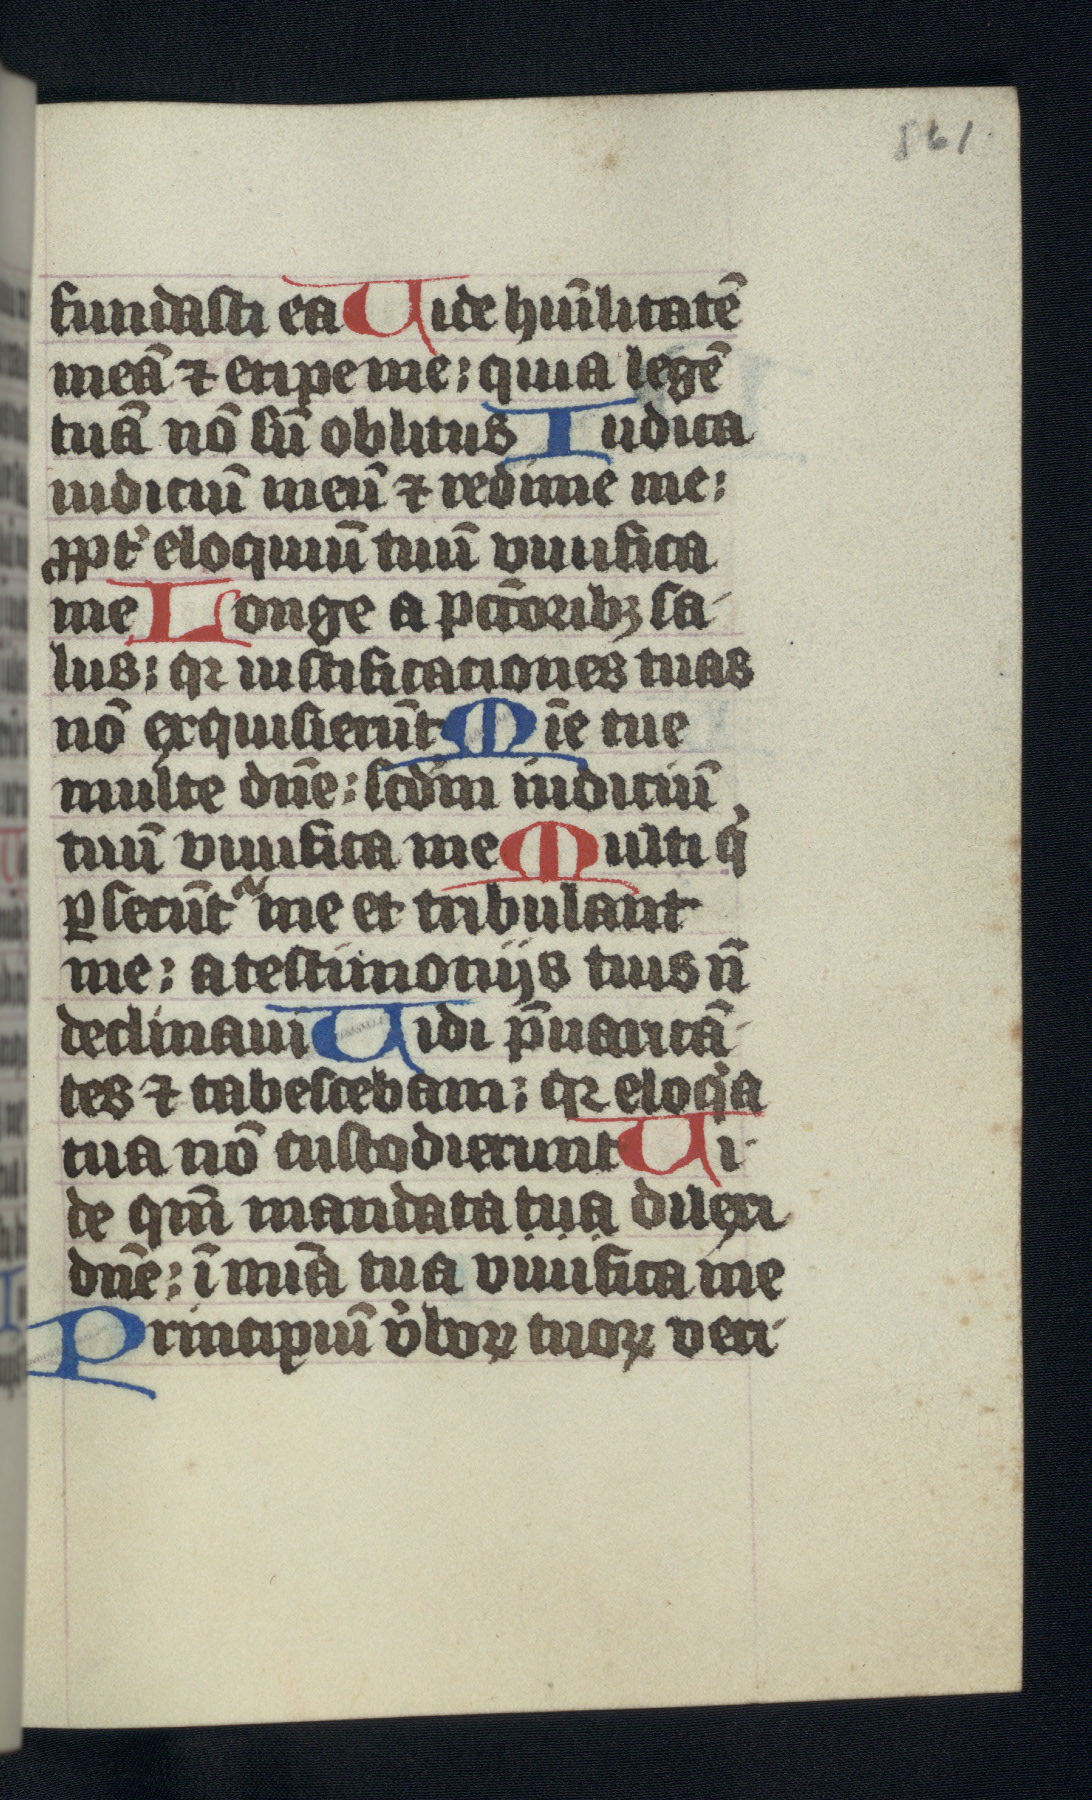 861
fundasti ea Uide hūilitatē
meā ⁊ eripe me: quia legē
tuā nō sū oblitus Iudica
iudiciū meū ⁊ redime me:
ꝓpt̾ eloquiū tuū uiuifica
me Longe a pctōribꝫ sa-
lus: qꝛ iustificationes tuas
nō exquisierūt Mīe tue
multe dn̄e: scdm iudiciū
tuū uiuifica me Multi qͥ
ꝑsecūt᷑ me et tribulant
me: a testimonijs tuis n̄
declinaui Uidi p̄uaricā-
tes ⁊ tabescebam: qꝛ eloqͥa
tua nō custodierunt Ui-
de qm̄ mandata tua dilexi
dn̄e: ī miā tua uiuifica me
Principiū v̾boꝝ tuoꝝ veri-